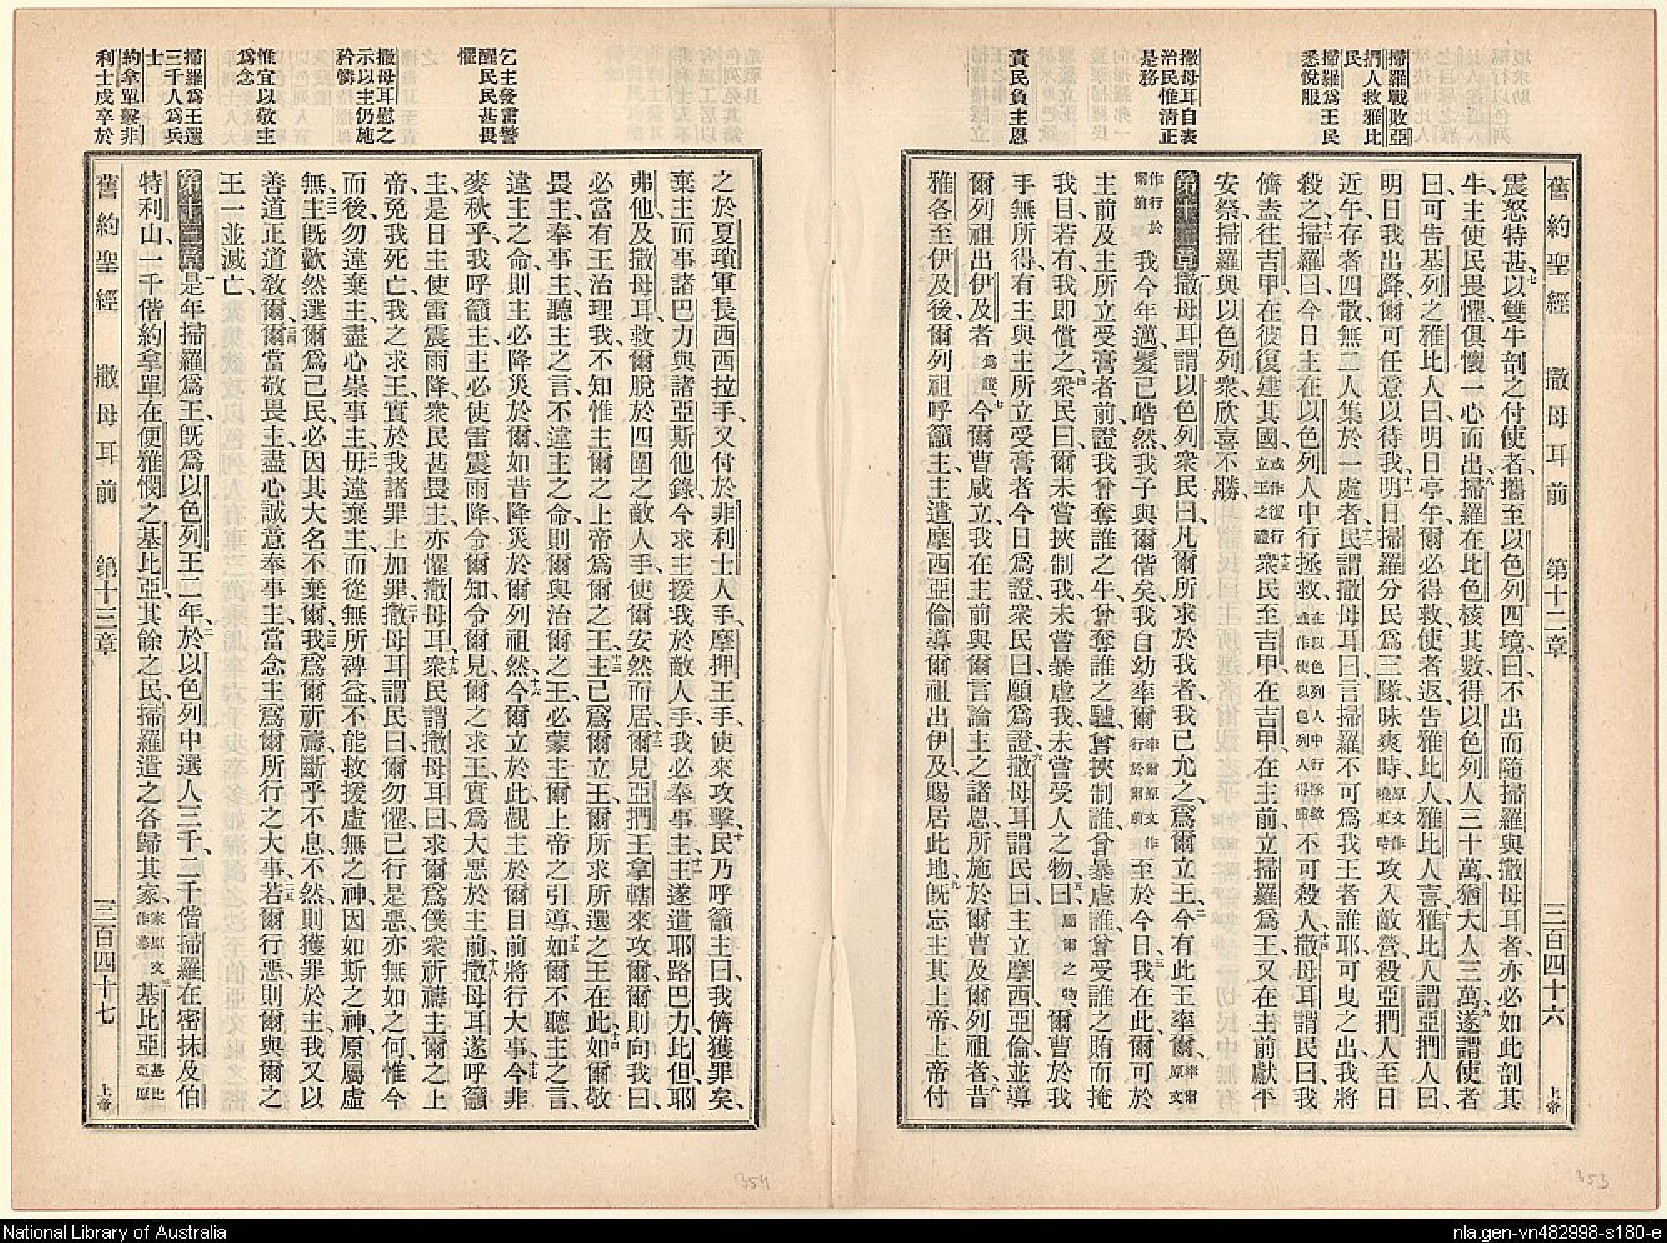 舊約聖經 撒母耳前 第十二章 三百四十六 上帝
掃羅戰敗亞
捫人救雅比
民
掃羅爲王民
悉悅服
撒母耳自表
治民惟清正
是務
責民負主恩
震怒特甚七以雙牛剖之付使者攜至以色列四境曰不出而隨掃羅與撒母耳者亦必如此剖其
牛主使民畏懼俱懷一心而出八掃羅在比色核其數得以色列人三十萬猶大人三萬九遂謂使者
曰可告基列之雅比人曰明日亭午爾必得救使者返告雅比人雅比人喜十雅比人謂亞捫人曰
明日我出降爾可任意以待我十一明日掃羅分民爲三隊昧爽時原文作曉更時攻入敵營殺亞捫人至日
近午存者四散無二人集於一處者十二民謂撒母耳曰言掃羅不可爲我王者誰耶可曳之出我將
殺之十三掃羅曰今日主在以色列人中行拯救在以色列人中行拯救或作使以色列人得勝不可殺人十四撒母耳謂民曰我
儕盍往吉甲在彼復建其國或作復行立王之禮十五衆民至吉甲在吉甲在主前立掃羅爲王又在主前獻平
安祭掃羅與以色列衆欣喜不勝
第十二章一撒母耳謂以色列衆民曰凡爾所求於我者我已允之爲爾立王二今有此王率爾率爾原文
作行於爾前我今年邁髮已皓然我子與爾偕矣我自幼率爾率爾原文作行於爾前至於今日三我在此爾可於
主前及主所立受膏者前證我曾奪誰之牛曾奪誰之驢曾挾制誰曾暴虐誰曾受誰之賄而掩
我目若有我即償之四衆民曰爾未嘗挾制我未嘗暴虐我未嘗受人之物五曰爾曹於我
手無所得有主與主所立受膏者今日爲證衆民曰願爲證六撒母耳謂民曰主立摩西亞倫並導
爾列祖出伊及者爲證七今爾曹咸立我在主前與爾言論主之諸恩所施於爾曹及爾列祖者八昔
雅各至伊及後爾列祖呼籲主主遣摩西亞倫導爾祖出伊及賜居此地九旣忘主其上帝上帝付
乞主發雷警
醒民民甚畏
懼
撒母耳慰之
示以主仍施
矜憐
惟宜以敬主
爲念
掃羅爲王選
三千人爲兵
士
約拿單擊非
利士戍卒於
之於夏瑣軍長西西拉手又付於非利士人手摩押王手使來攻擊十民乃呼籲主曰我儕獲罪矣
棄主而事諸巴力與諸亞斯他錄今求主援我於敵人手我必奉事主十一主遂遣耶路巴力比但耶
弗他及撒母耳救爾脫於四圍之敵人手使爾安然而居十二爾見亞捫王拿轄來攻爾爾則向我曰
必當有王治理我不知惟主爾之上帝爲爾之王十三主已爲爾立王爾所求所選之王在此十四如爾敬
畏主奉事主聽主之言不違主之命則爾與治爾之王必蒙主爾上帝之引導十五如爾不聽主之言
違主之命則主必降災於爾如昔降災於爾列祖然十六今爾立於此觀主於爾目前將行大事十七今非
麥秋乎我呼籲主主必使雷震雨降令爾知令爾見爾之求王實爲大惡於主前十八撒母耳遂呼籲
主主是日主使雷震雨降衆民甚畏主亦懼撒母耳十九衆民謂撒母耳曰求爾爲僕衆祈禱主爾之上
帝免我死亡我之求王實於我諸罪上加罪二十撒母耳謂民曰爾勿懼已行是惡亦無如之何惟今
而後勿違棄主盡心崇事主二一毋違棄主而從無所裨益不能救援虛無之神因如斯之神原屬虛
無二二主旣歡然選爾爲己民必因其大名不棄爾二三我爲爾祈禱斷乎不息不然則獲罪於主我又以
善道正道教爾二四爾當敬畏主盡心誠意奉事主當念主爲爾所行之大事二五若爾行惡則爾與爾之
王一並滅亡
第十三章一是年掃羅爲王旣爲以色列王二年二於以色列中選人三千二千偕掃羅在密抹及伯
特利山一千偕約拿單在便雅憫之基比亞其餘之民掃羅遣之各歸其家家原文作幕三基比亞基比亞原
舊約聖經 撒母耳前 第十三章 三百四十七 上帝
354
353
National Library of Australia
nla.gen-vn482998-s180-e